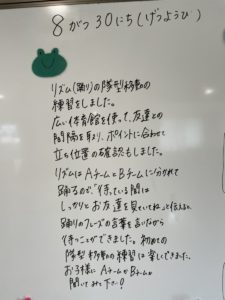 8がつ30にち(げつようび)
リズム(踊り)の隊型移動の
練習をしました。
広い体育館を使って、友達との
間隔を取り、ポイントに合わせて
立ち位置の確認もしました。
リズムはAチームとBチームに分かれて
踊るので、「待っている間は
しっかりとお友達を見ていてね」と伝えると、
踊りのフレーズの言葉を言いながら
待つことができました。初めての
隊型移動の練習は楽しくできました。
お子様にAチームかBチームか
聞いてみて下さい!